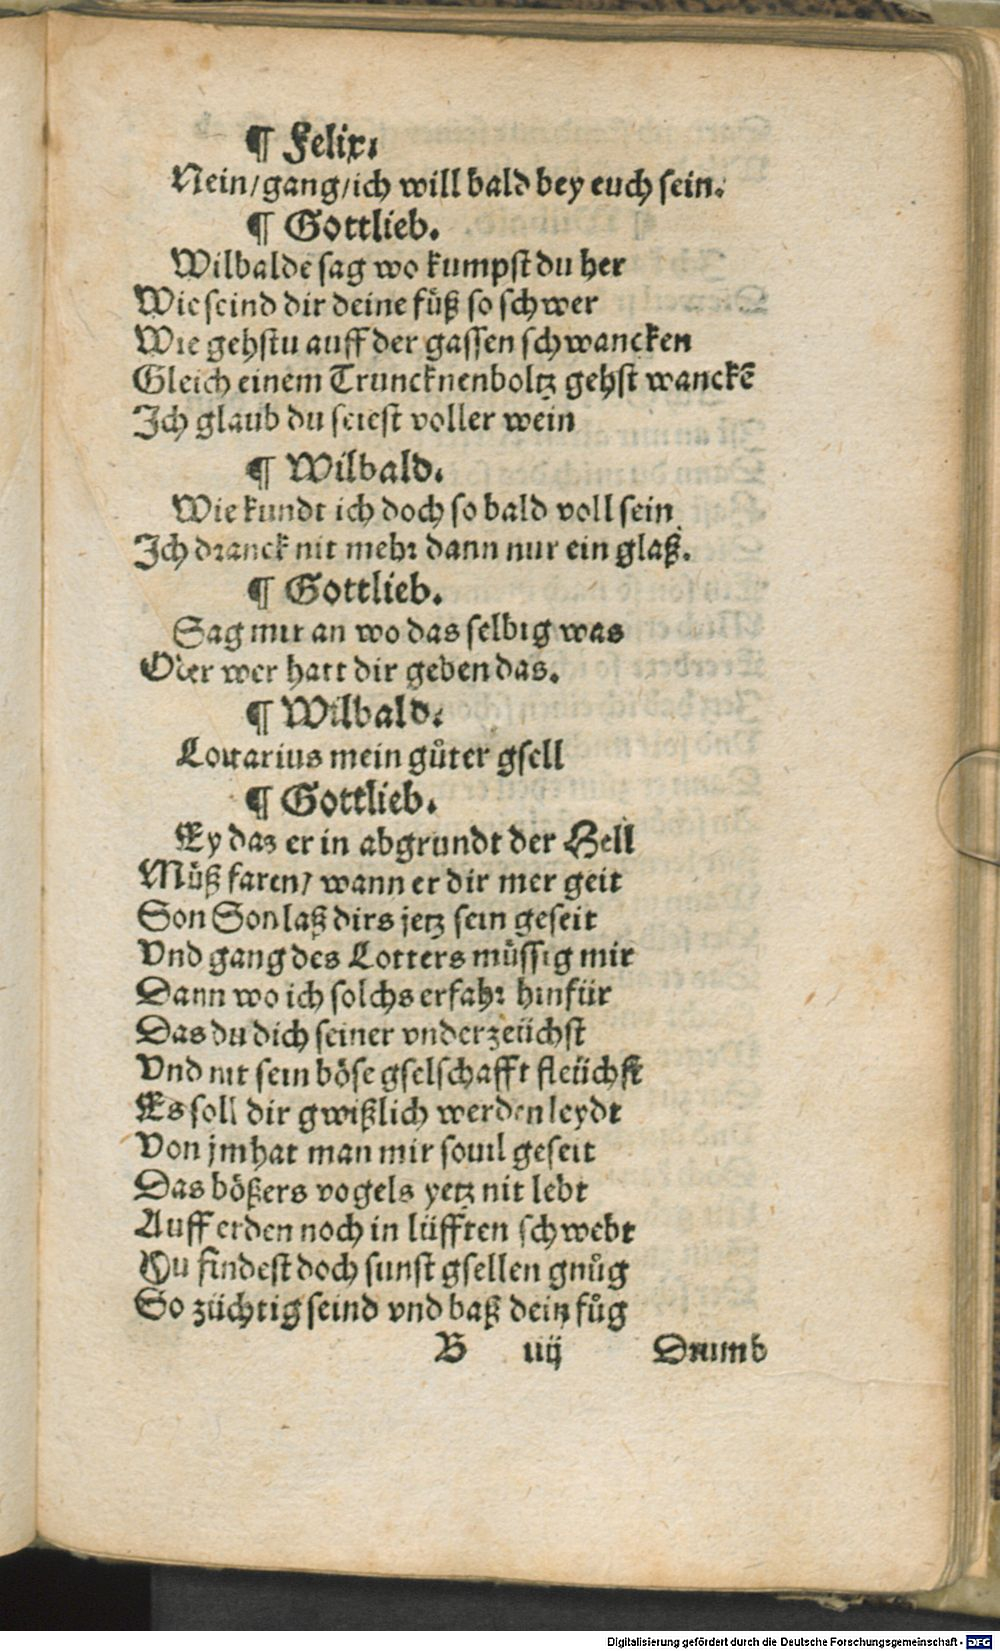 ¶ Felix.
Nein/gang/ich will bald bey euch sein.
¶ Gottlieb.
Wilbalde sag wo kumpst du her
Wie seind dir deine fuͤß so schwer
Wie gehstu auff der gassen schwancken
Gleich einem Truncknenboltz gehst wanckē
Ich glaub du seiest voller wein
¶ Wilbald.
Wie kundt ich doch so bald voll sein
Ich dranck nit mehr dann nur ein glaß.
¶ Gottlieb.
Sag mir an wo das selbig was
Oder wer hatt dir geben das.
¶ Wilbald.
Lottarius mein guͦter gsell
¶ Gottlieb.
Ey das er in abgrundt der Hell
Muͤß faren/ wann er dir mer geit
Son Son laß dirs jetz sein geseit
Vnd gang des Lotters muͤssig mir
Dann wo ich solchs erfahr hinfür
Das du dich seiner vnderzeüchst
Vnd nit sein boͤse gselschafft fleüchst
Es soll dir gwißlich werden leydt
Von jm hat man mir souil geseit
Das boͤßers vogels yetz nit lebt
Auff erden noch in lüfften schwebt
Du findest doch sunst gsellen gnuͦg
So züchtig seind vnd baß dein fuͦg
B iiij Drumb
Digitalisierung gefördert durch die Deutsche Forschungsgemeinschaft - DFG